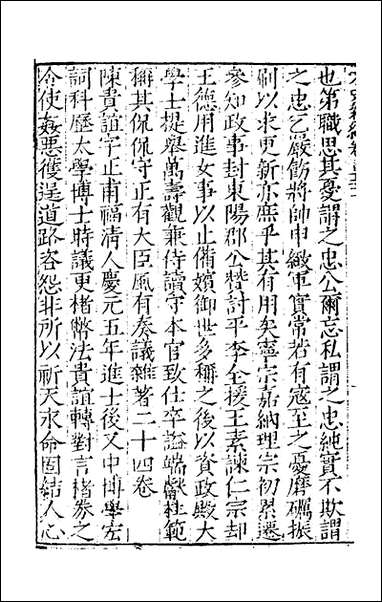 也第職思其憂謂之忠公爾忘私謂之忠純實不欺謂
之忠乞嚴飭將帥申儆軍實常若有寇至之憂磨礪振
刷以求更新亦庶乎其有用矣寧宗嘉納理宗初累遷
參知政事封東陽郡公贊討平李全援王素諫仁宗却
王德用進女事以止備嬪御世多稱之後以資政殿大
學士提舉萬壽觀兼侍讀守本官致仕卒謚端獻杜範
稱其侃侃守正有大臣風有奏議雜著二十四卷
陳貴誼字正甫福清人慶元五年進士後又中博學宏
詞科歷太學博士時議更楮幣法貴誼轉對言楮券之
令使姦惡獲逞道路咨怨非所以祈天永命固結人心